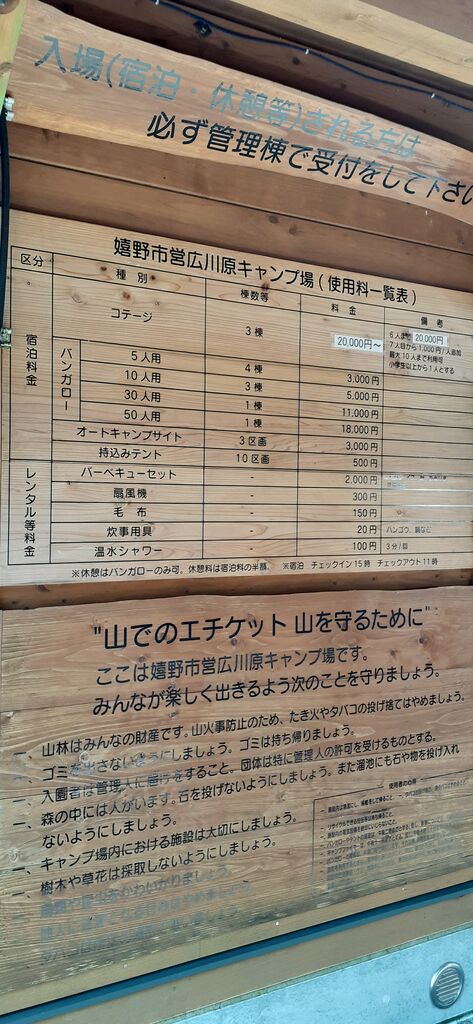 入場(宿泊・休憩等)される方は
必ず管理棟で受付をして下さい
嬉野市営広川原キャンプ場(使用料一覧表)
区分 種別 棟数等 料金 備考
宿泊料金
コテージ 3棟 20,000円~ 6人まで 20,000円
7人目から1,000円/人追加
最大10人まで利用可
小学生以上から1人とする
バンガロー
5人用 4棟 3,000円
10人用 3棟 5,000円
30人用 1棟 11,000円
50人用 1棟 18,000円
オートキャンプサイト 3区画 3,000円
持込みテント 10区画 500円
レンタル等料金
バーベキューセット - 2,000円
扇風機 - 300円
毛布 - 150円
炊事用具 - 20円 ハンゴウ、鍋など
温水シャワー - 100円 3分/回
※休憩はバンガローのみ可。休憩料は宿泊料の半額。 ※宿泊 チェックイン15時 チェックアウト11時
"山でのエチケット 山を守るために"
ここは嬉野市営広川原キャンプ場です。
みんなが楽しく出きるよう次のことを守りましょう。
一、山林はみんなの財産です。山火事防止のため、たき火やタバコの投げ捨てはやめましょう。
一、ゴミを出さないようにしましょう。ゴミは持ち帰りましょう。
一、入園者は管理人に届けをすること。団体は特に管理人の許可を受けるものとする。
一、森の中には人がいます。石を投げないようにしましょう。また溜池にも石や物を投げ入れ
ないようにしましょう。
一、キャンプ場内における施設は大切にしましょう。
一、樹木や草花は採取しないようにしましょう。